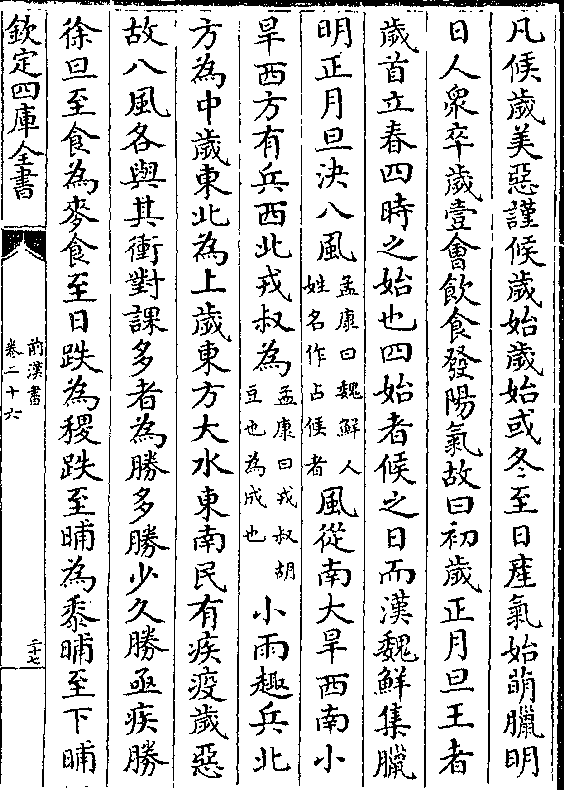 凡候歲美惡謹候歲始歲始或冬至日產氣始萌臘明
日人衆卒歲壹會飲食發陽氣故曰初歲正月旦王者
歲首立春四時之始也四始者候之日而漢魏鮮集臘
明正月旦決八風孟康曰魏鮮人姓名作占候者風從南大旱西南小
旱西方有兵西北戎叔為孟康曰戎叔胡豆也為成也小雨趣兵北
方為中歲東北為上歲東方大水東南民有疾疫歲惡
故八風各與其衝對課多者為勝多勝少久勝亟疾勝
徐旦至食為麥食至日跌為稷跌至晡為黍晡至下晡
欽定四庫全書
前漢書
卷二十六
二十七